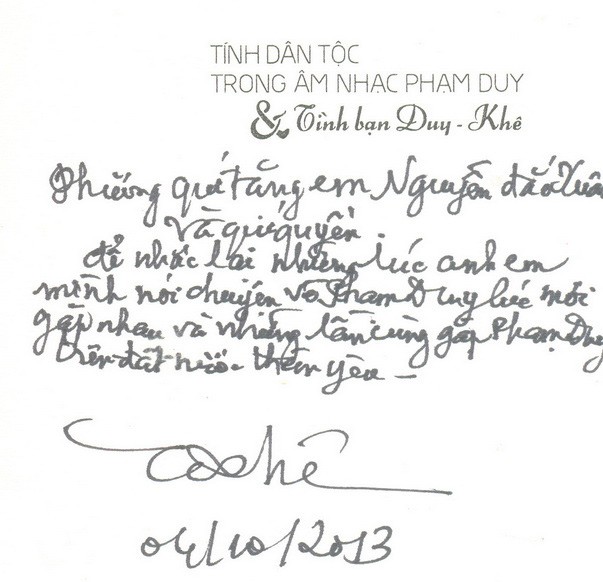 TÍNH DÂN TỘC
TRONG ÂM NHẠC PHẠM DUY
& Tình bạn Duy - Khê
quí tặng em Nguyễn đắc Xuân
Và quí quyến
để nhắc lại những lúc anh em
mình nói chuyện về Phạm Duy lúc mới
gặp nhau và những lần cùng gặp Phạm Duy
trên đất nước thân yêu —
04/10/2013